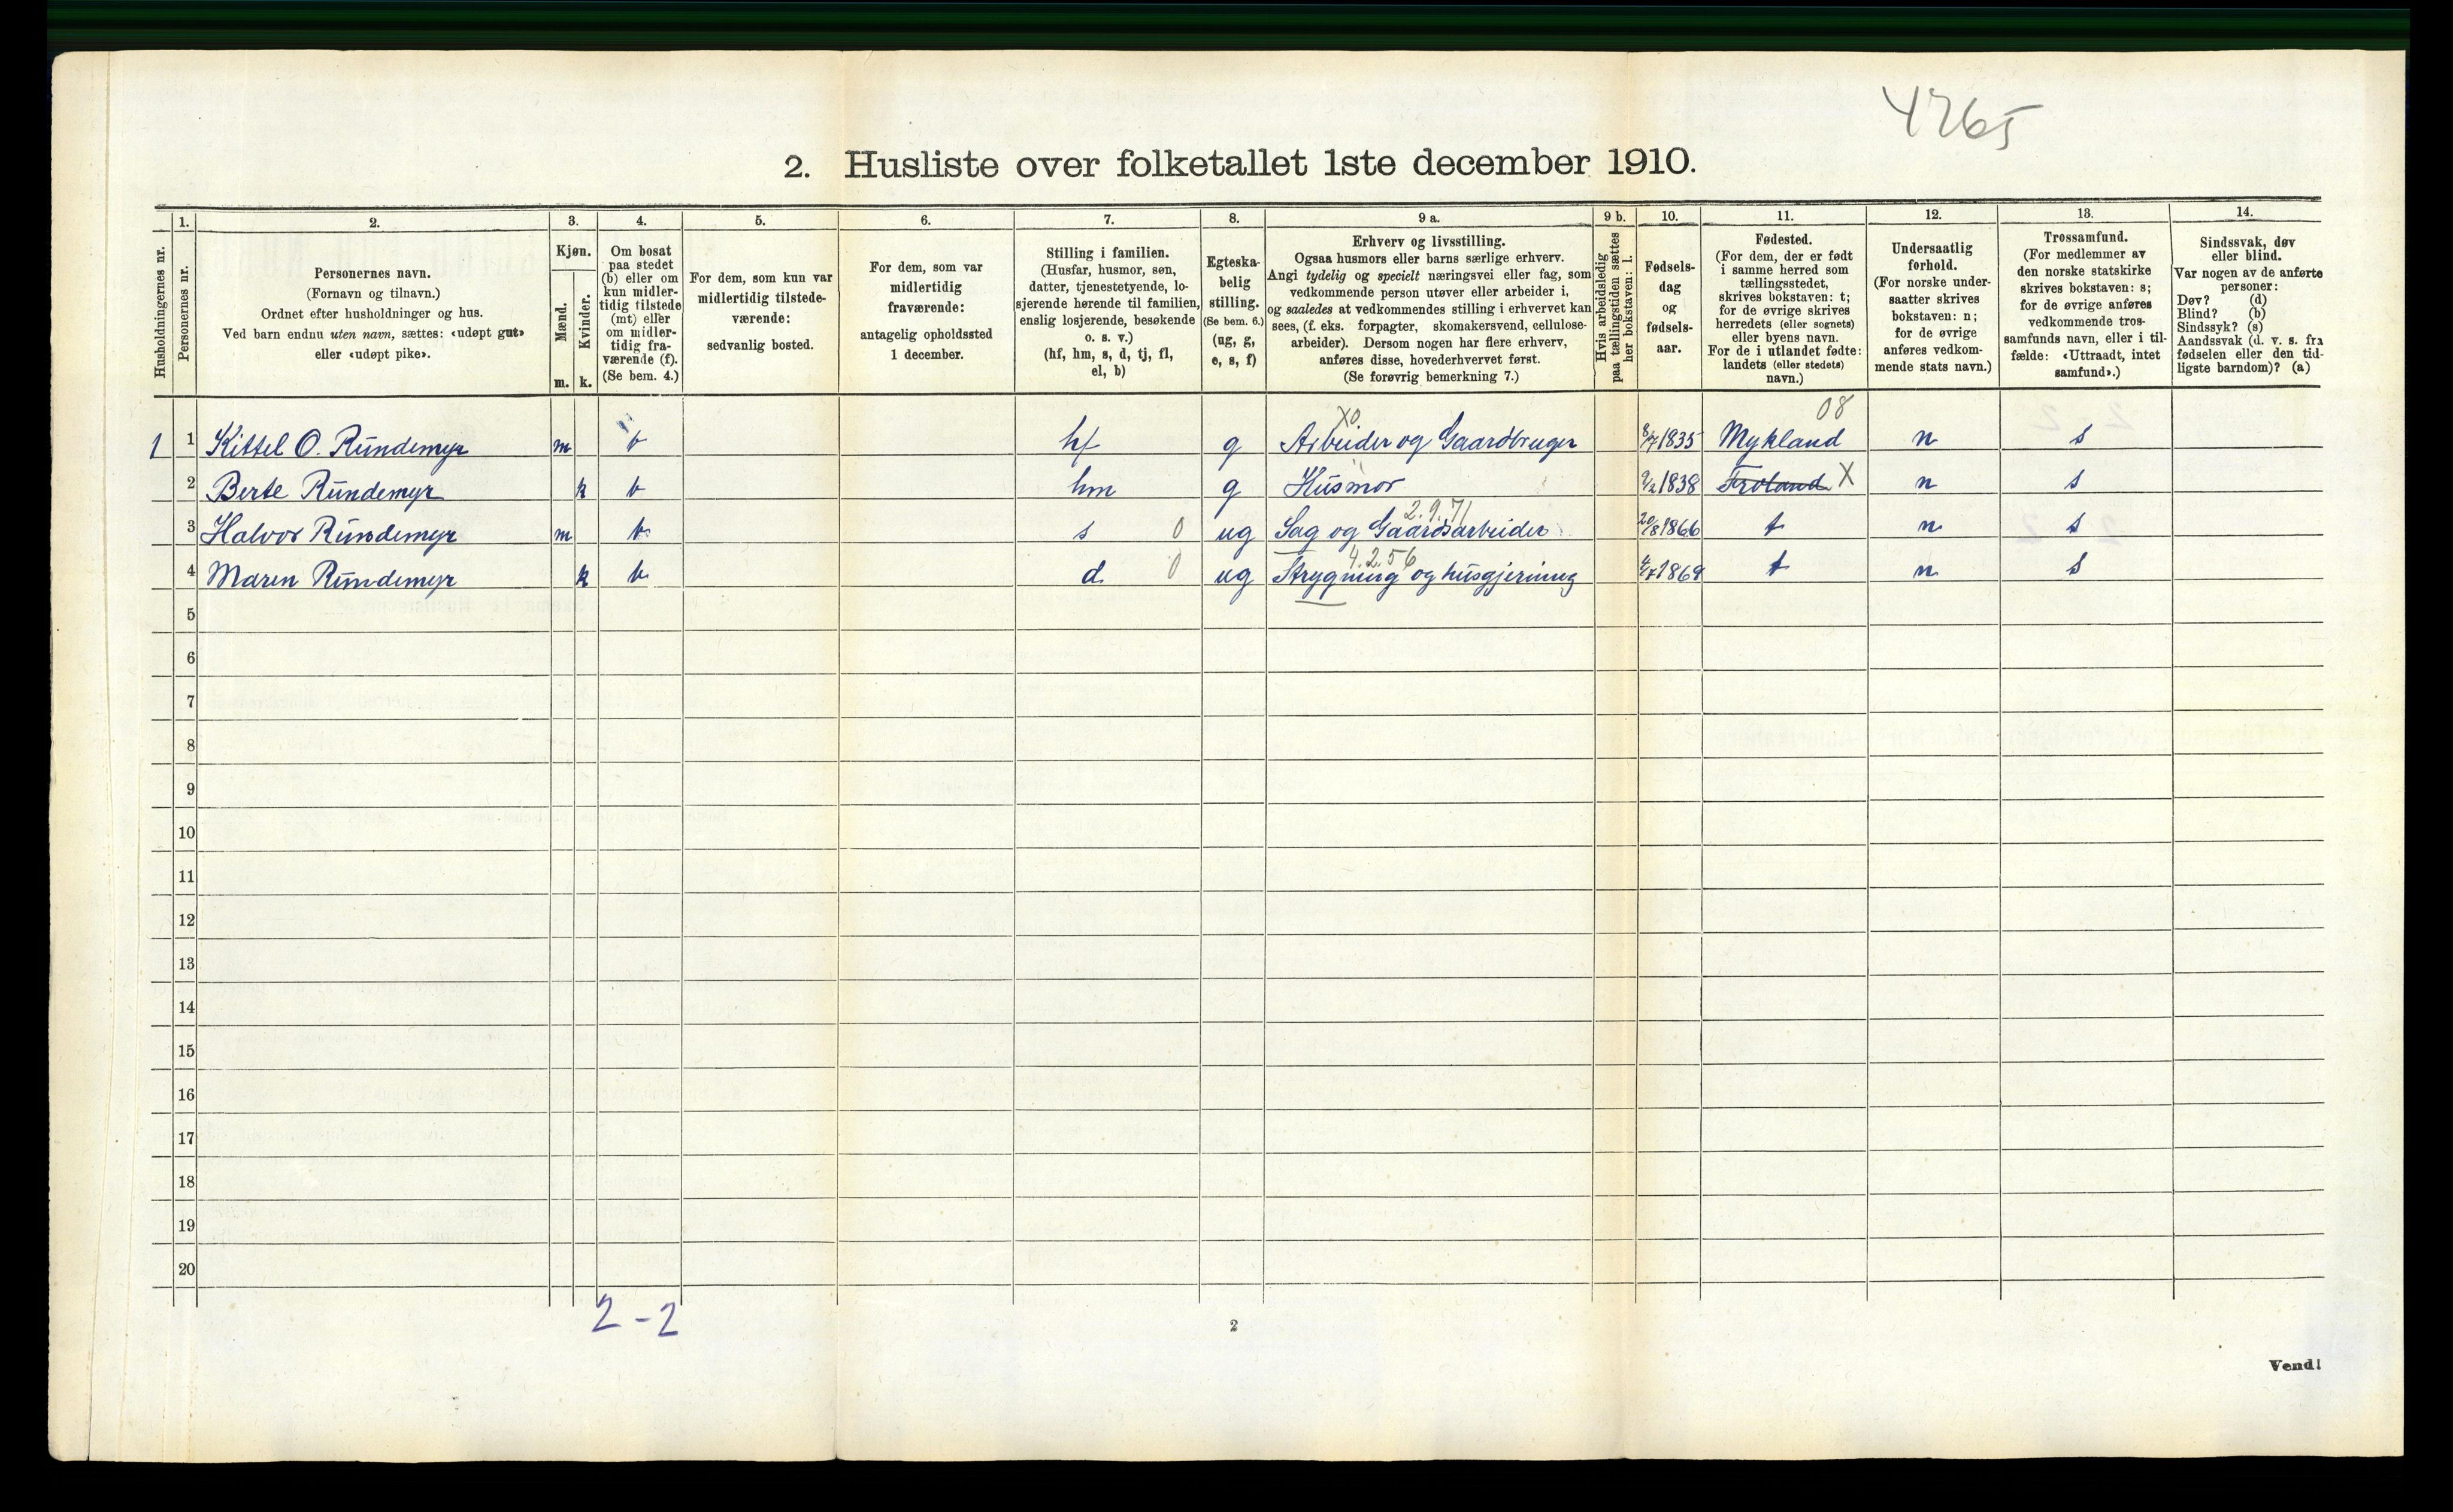 4265
2. Husliste over folketallet 1ste december 1910.
Husholdningernes nr.
1.
Personernes nr.
2.
Personernes navn.
(Fornavn og tilnavn.)
Ordnet efter husholdninger og hus.
Ved barn endnu uten navn, sættes: «udøpt gut»
eller «udøpt pike».
3.
Kjøn.
Mænd.
m.
Kvinder.
k.
4.
Om bosat
paa stedet
(b) eller om
kun midler-
tidig tilstede
(mt) eller
om midler-
tidig fra-
værende (f).
(Se bem. 4.)
5.
For dem, som kun var
midlertidig tilstede-
værende:
sedvanlig bosted.
6.
For dem, som var
midlertidig
fraværende:
antagelig opholdssted
1 december.
7.
Stilling i familien.
(Husfar, husmor, søn,
datter, tjenestetyende, lo-
sjerende hørende til familien,
enslig losjerende, besøkende
o. s. v.)
(hf, hm, s, d, tj, fl,
el, b)
8.
Egteska-
belig
stilling.
(Se bem. 6.)
(ug, g,
e, s, f)
9 a.
Erhverv og livsstilling.
Ogsaa husmors eller barns særlige erhverv.
Angi tydelig og specielt næringsvei eller fag, som
vedkommende person utøver eller arbeider i,
og saaledes at vedkommendes stilling i erhvervet kan
sees, (f. eks. forpagter, skomakersvend, cellulose-
arbeider). Dersom nogen har flere erhverv,
anføres disse, hovederhvervet først.
(Se forøvrig bemerkning 7.)
9 b.
Hvis arbeidsledig
paa tællingstiden sættes
her bokstaven: l.
10.
Fødsels-
dag
og
fødsels-
aar.
11.
Fødested.
(For dem, der er født
i samme herred som
tællingsstedet,
skrives bokstaven: t;
for de øvrige skrives
herredets (eller sognets)
eller byens navn.
For de i utlandet fødte:
landets (eller stedets)
navn.)
12.
Undersaatlig
forhold.
(For norske under-
saatter skrives
bokstaven: n;
for de øvrige
anføres vedkom-
mende stats navn.)
13.
Trossamfund.
(For medlemmer av
den norske statskirke
skrives bokstaven: s;
for de øvrige anføres
vedkommende tros-
samfunds navn, eller i til-
fælde: «Uttraadt, intet
samfund».)
14.
Sindssvak, døv
eller blind.
Var nogen av de anførte
personer:
Døv? (d)
Blind? (b)
Sindssyk? (s)
Aandssvak (d. v. s. fra
fødselen eller den tid-
ligste barndom)? (a)
X0 08
1 1 Kittel O. Rundemyr m b hf g Arbeider og Gaardbruger 1835 Mykland n s
2 Berte Rundemyr k b hm g Husmor 2/2 1838 Froland X n s
2.9.71
3 Halvor Rundemyr m b s 0 ug Sag og Gaardsarbeider 20/8 1866 t n s
4.2.56
4 Maren Rundemyr k b d 0 ug Strygning og husgjerning 1869 t n s
5
6
7
8
9
10
11
12
13
14
15
16
17
18
19
20
2-2
2
Vend!